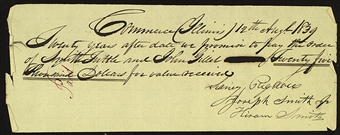 Commerce Illinois 12th Augt 1839
Twenty years after date we promise to pay the order
of Tuttle and John Gillet Twenty five
Thousand Dollars for value received
Sidney Rigdon
Joseph Smith Jr
Hiram Smith